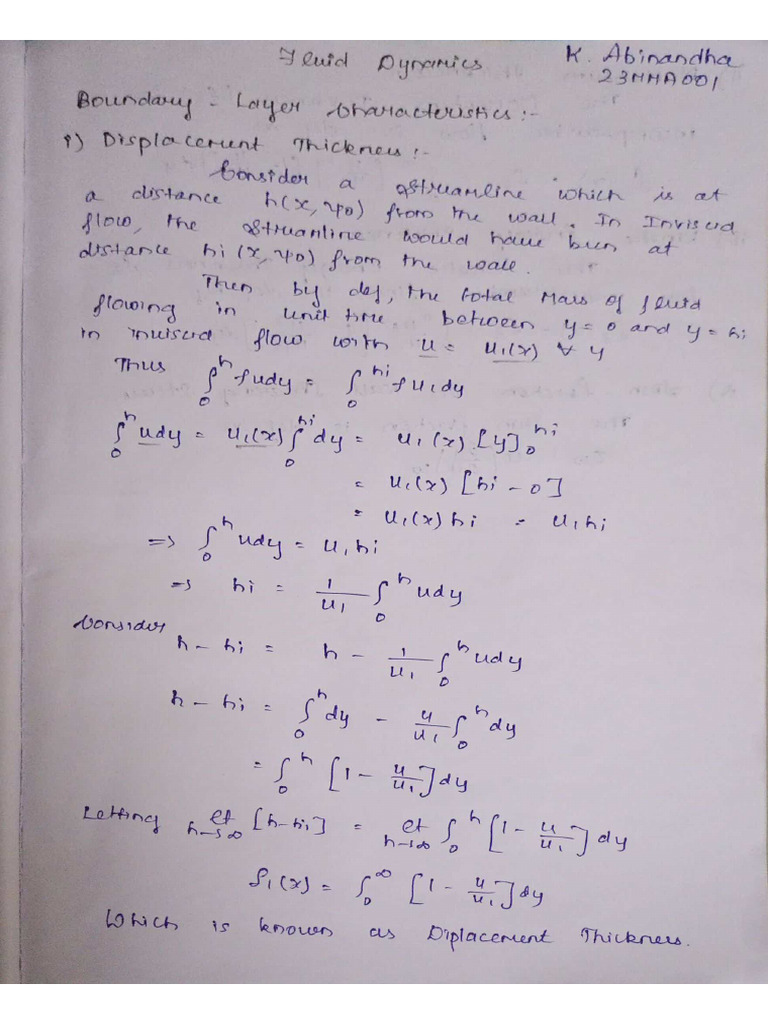 Fluid Dynamics
K. Abinandha
23MMA001
Boundary - Layer Characteristics :-
i) Displacement Thickness :-
Consider a streamline which is at
a distance h(x, ψ0) from the wall. In Inviscid
flow, the streamline would have been at
distance hi (x, ψ0) from the wall.
Then by def, the total Mass of fluid
flowing in unit time between y = 0 and y = hi
in inviscid flow with u = u1(x) ∀ y
Thus ∫_0^h ρudy = ∫_0^hi ρu1dy
∫_0^h udy = u1(x) ∫_0^hi dy = u1(x) [y]_0^hi
= u1(x) [hi - 0]
= u1(x) hi = u1hi
=> ∫_0^h udy = u1hi
=> hi = 1/u1 ∫_0^h udy
Consider
h - hi = h - 1/u1 ∫_0^h udy
h - hi = ∫_0^h dy - u/u1 ∫_0^h dy
= ∫_0^h [1 - u/u1] dy
Letting lt h→∞ [h-hi] = lt h→∞ ∫_0^h [1 - u/u1] dy
δ1(x) = ∫_0^∞ [1 - u/u1] dy
Which is known as Diplacement Thickness.